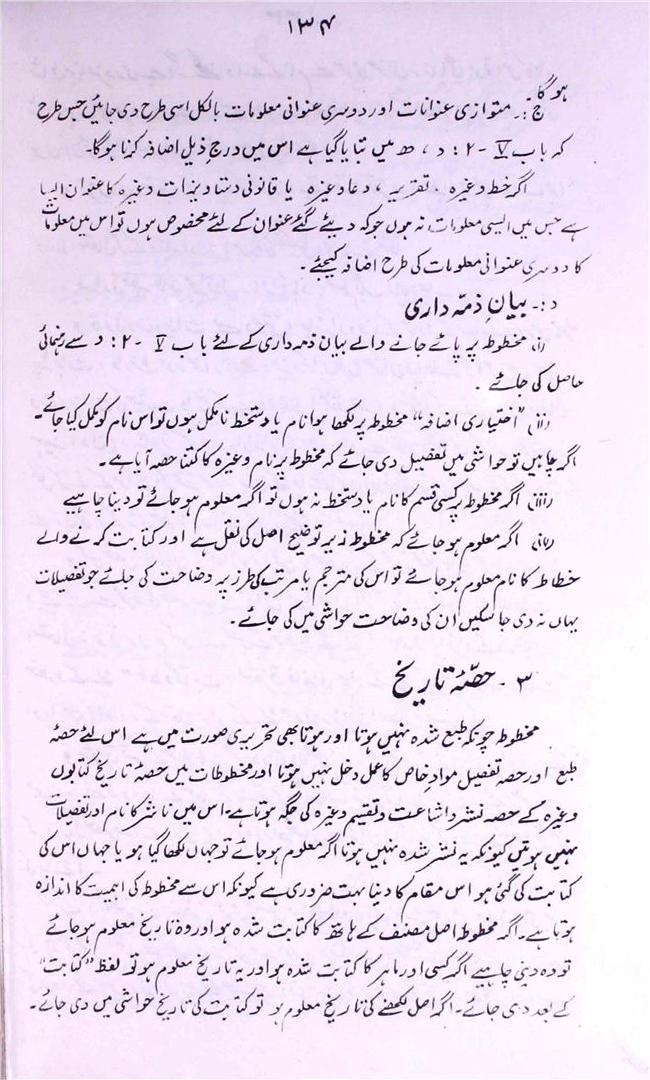 ۱۳۴
ہوگا۔
ج :۔ متوازی عنوانات اور دوسری عنوانی معلومات بالکل اسی طرح دی جائیں جس طرح
کہ باب V - ۲ : د ، ھ میں بتایا گیا ہے اس میں درج ذیل اضافہ کرنا ہوگا۔
اگر خط وغیرہ ، تقریر ، دعا وغیرہ یا قانونی دستاویزات وغیرہ کا عنوان ایسا
ہے جس میں ایسی معلومات نہ ہوں جو کہ دیئے گئے عنوان کے لئے مخصوص ہوں تو اس میں معلومات
کا دوسری عنوانی معلومات کی طرح اضافہ کیجئے ۔
د :۔ بیان ذمہ داری
(i) مخطوط پر پائے جانے والے بیان ذمہ داری کے لئے باب V - ۲ : د سے رہنمائی
حاصل کی جائے ۔
(ii) "اختیاری اضافہ" مخطوط پر لکھا ہوا نام یا دستخط نامکمل ہوں تو اس نام کو مکمل کیا جائے۔
اگر چاہیں تو حواشی میں تفصیل دی جائے کہ مخطوط پر نام وغیرہ کا کتنا حصہ آیا ہے۔
(iii) اگر مخطوط پر کسی قسم کا نام یا دستخط نہ ہوں تو اگر معلوم ہو جائے تو دینا چاہیے
(iv) اگر معلوم ہو جائے کہ مخطوط زیر توضیح اصل کی نقل ہے اور کتابت کرنے والے
خطاط کا نام معلوم ہو جائے تو اس کی مترجم یا مرتب کی طرز پر وضاحت کی جائے جو تفصیلات
یہاں نہ دی جا سکیں ان کی وضاحت حواشی میں کی جائے ۔
۳ - حصّۂ تاریخ
مخطوط چونکہ طبع شدہ نہیں ہوتا اور ہوتا بھی تحریری صورت میں ہے اس لئے حصۂ
طبع اور حصہ تفصیل مواد خاص کا عمل دخل نہیں ہوتا اور مخطوطات میں حصۂ تاریخ کتابوں
وغیرہ کے حصہ نشر و اشاعت و تقسیم وغیرہ کی جگہ ہوتا ہے۔ اس میں ناشر کا نام اور تفصیلات
نہیں ہوتیں کیونکہ یہ نشر شدہ نہیں ہوتا اگر معلوم ہو جائے تو جہاں لکھا گیا ہو یا جہاں اس کی
کتابت کی گئی ہو اس مقام کا دینا بہت ضروری ہے کیونکہ اس سے مخطوط کی اہمیت کا اندازہ
ہوتا ہے۔ اگر مخطوط اصل مصنف کے ہاتھ کا کتابت شدہ ہو اور وہ تاریخ معلوم ہو جائے
تو وہ دینی چاہیے اگر کسی اور ماہر کا کتابت شدہ ہو اور یہ تاریخ معلوم ہو تو لفظ "کتابت"
کے بعد دی جائے۔ اگر اصل لکھنے کی تاریخ معلوم ہو تو کتابت کی تاریخ حواشی میں دی جائے۔